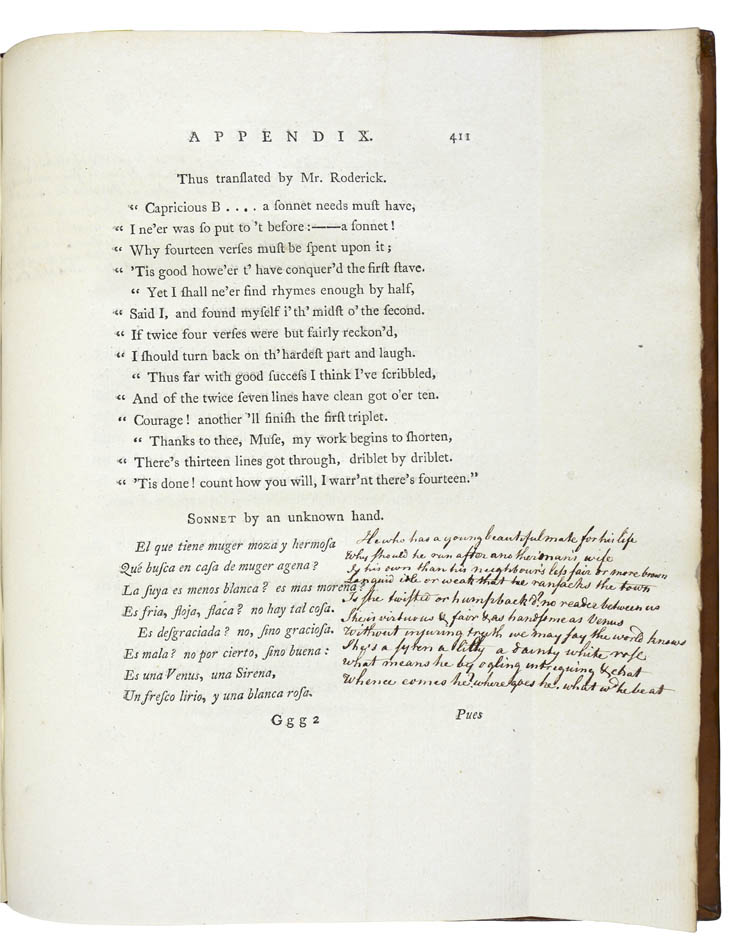 APPENDIX. 411
Thus tranſlated by Mr. Roderick.
“ Capricious B . . . . a ſonnet needs muſt have,
“ I ne'er was ſo put to 't before :——a ſonnet!
“ Why fourteen verſes muſt be ſpent upon it;
“ 'Tis good howe'er t' have conquer'd the firſt ſtave.
“ Yet I ſhall ne'er find rhymes enough by half,
“ Said I, and found myſelf i' th' midſt o' the ſecond.
“ If twice four verſes were but fairly reckon'd,
“ I ſhould turn back on th' hardeſt part and laugh.
“ Thus far with good ſucceſs I think I've ſcribbled,
“ And of the twice ſeven lines have clean got o'er ten.
“ Courage! another 'll finiſh the firſt triplet.
“ Thanks to thee, Muſe, my work begins to ſhorten,
“ There's thirteen lines got through, driblet by driblet.
“ 'Tis done! count how you will, I warr'nt there's fourteen.”
SONNET by an unknown hand.
El que tiene muger moza y hermoſa
Qué buſca en caſa de muger agena?
La ſuya es menos blanca? es mas morena?
Es fria, floja, flaca? no hay tal coſa.
Es deſgraciada? no, ſino gracioſa.
Es mala? no por cierto, ſino buena:
Es una Venus, una Sirena,
Un freſco lirio, y una blanca roſa.
He who has a young beautiful mate for his life
Why should he run after another man's wife
Is his own than his neighbour's leſs fair or more brown
Languid idle or weak that he ranſacks the town
Is she twisted or humpback'd? no reader between us
She is virtuous & fair & as handsome as Venus
Without injuring truth we may ſay the world knows
She's a ſyren a lilly a dainty white roſe
What means he by ogling intriguing & chat
Whence comes he? where goes he? what wd he be at
Ggg 2 Pues